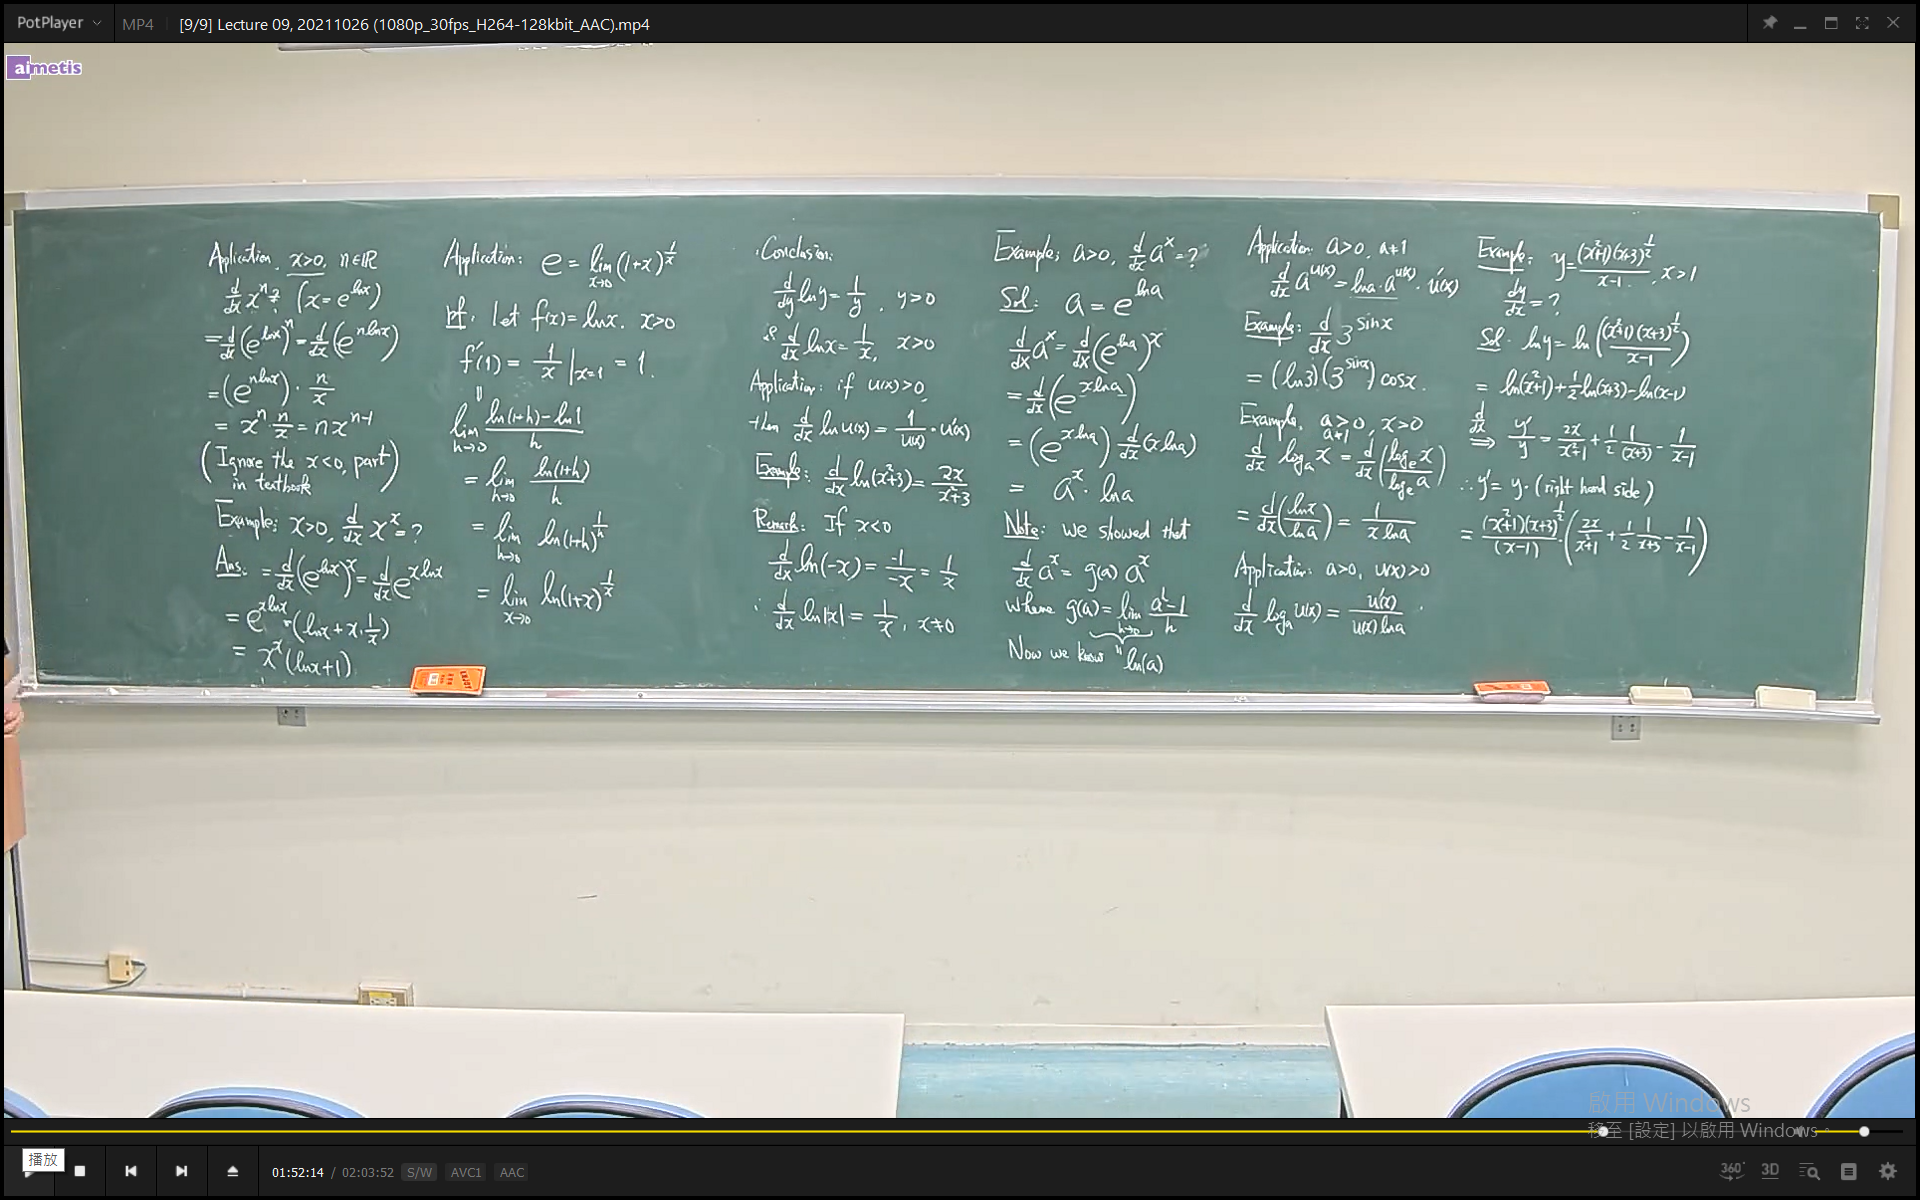 PotPlayer
MP4
[9/9] Lecture 09, 20211026 (1080p_30fps_H264-128kbit_AAC).mp4
aimetis
Application. x>0, n∈ℝ
d/dx xⁿ? (x = e^{lnx})
= d/dx (e^{lnx})ⁿ = d/dx (e^{nlnx})
= (e^{nlnx}) · n/x
= xⁿ · n/x = nx^{n-1}
(Ignore the x<0, part)
in textbook
Example: x>0, d/dx x^x = ?
Ans: = d/dx (e^{lnx})^x = d/dx e^{xlnx}
= e^{xlnx} · (lnx + x · 1/x)
= x^x (lnx+1)
Application: e = lim_{x→0} (1+x)^{1/x}
pf. let f(x) = lnx. x>0
f'(1) = 1/x |_{x=1} = 1.
lim_{h→0} (ln(1+h) - ln1)/h
= lim_{h→0} ln(1+h)/h
= lim_{h→0} ln(1+h)^{1/h}
= lim_{x→0} ln(1+x)^{1/x}
Conclusion.
d/dy lny = 1/y, y>0
d/dx lnx = 1/x, x>0
Application: if u(x)>0,
then d/dx ln u(x) = 1/u(x) · u'(x)
Example: d/dx ln(x²+3) = 2x/(x²+3)
Remark: If x<0
d/dx ln(-x) = -1/-x = 1/x
∴ d/dx ln|x| = 1/x, x≠0
Example: a>0, d/dx a^x = ?
Sol: a = e^{lna}
d/dx a^x = d/dx (e^{lna})^x
= d/dx (e^{xlna})
= (e^{xlna}) d/dx (xlna)
= a^x · lna
Note: we showed that
d/dx a^x = g(a) a^x
where g(a) = lim_{h→0} (a^h - 1)/h
Now we know " ln(a)
Application. a>0, a≠1
d/dx a^{u(x)} = lna · a^{u(x)} · u'(x)
Example: d/dx 3^{sinx}
= (ln3)(3^{sinx}) cosx.
Example. a>0, x>0
a≠1
d/dx log_a x = d/dx (log_e x / log_e a)
= d/dx (lnx/lna) = 1/(x lna)
Application: a>0, u(x)>0
d/dx log_a u(x) = u'(x)/(u(x) lna)
Example: y = (x²+1)(x+3)^{1/2}/(x-1), x>1
dy/dx = ?
Sol. lny = ln((x²+1)(x+3)^{1/2}/(x-1))
= ln(x²+1) + 1/2 ln(x+3) - ln(x-1)
d/dx ⇒ y'/y = 2x/(x²+1) + 1/2 1/(x+3) - 1/(x-1)
∴ y' = y · (right hand side)
= (x²+1)(x+3)^{1/2}/(x-1) · (2x/(x²+1) + 1/2 1/(x+3) - 1/(x-1))
啟用 Windows
移至 [設定] 以啟用 Windows
播放
01:52:14 / 02:03:52 S/W AVC1 AAC
360° 3D